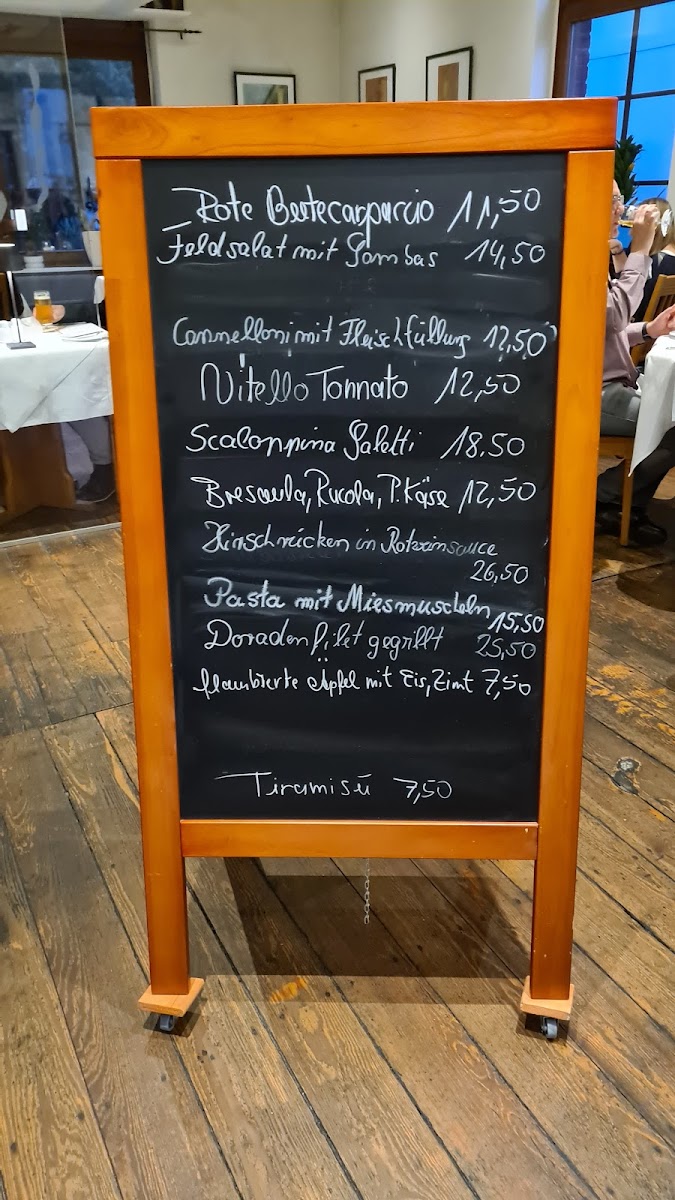 Rote Beetecarpaccio 11,50
Feldsalat mit Gambas 14,50
Cannelloni mit Fleischfüllung 12,50
Vitello Tonnato 12,50
Scaloppina Galetti 18.50
Bresaula, Rucola, P. Käse 12,50
Hirschrücken in Rotweinsauce
26,50
Pasta mit Miesmuscheln 15,50
Doradenfilet gegrillt 25,50
flambierte Äpfel mit Eis, Zimt 7,50
Tiramisú 7,50